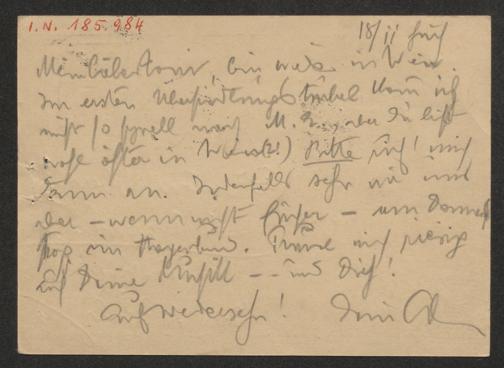 I.N. 185.984
18/II früh
Mein lieber , bin wieder in Wien.
Im ersten Übersiedlungstrubel kann ich
nicht so schnell nach M. , aber Du bist
wohl öfter in ) Bitte ruf' mich
dann an. Jedenfalls sehn wir uns
aber – wenn nicht früher – am Donners
tag im Hagenbund. Freue mich riesig
auf Deine – – und Dich!
Auf Wiedersehn! Dein